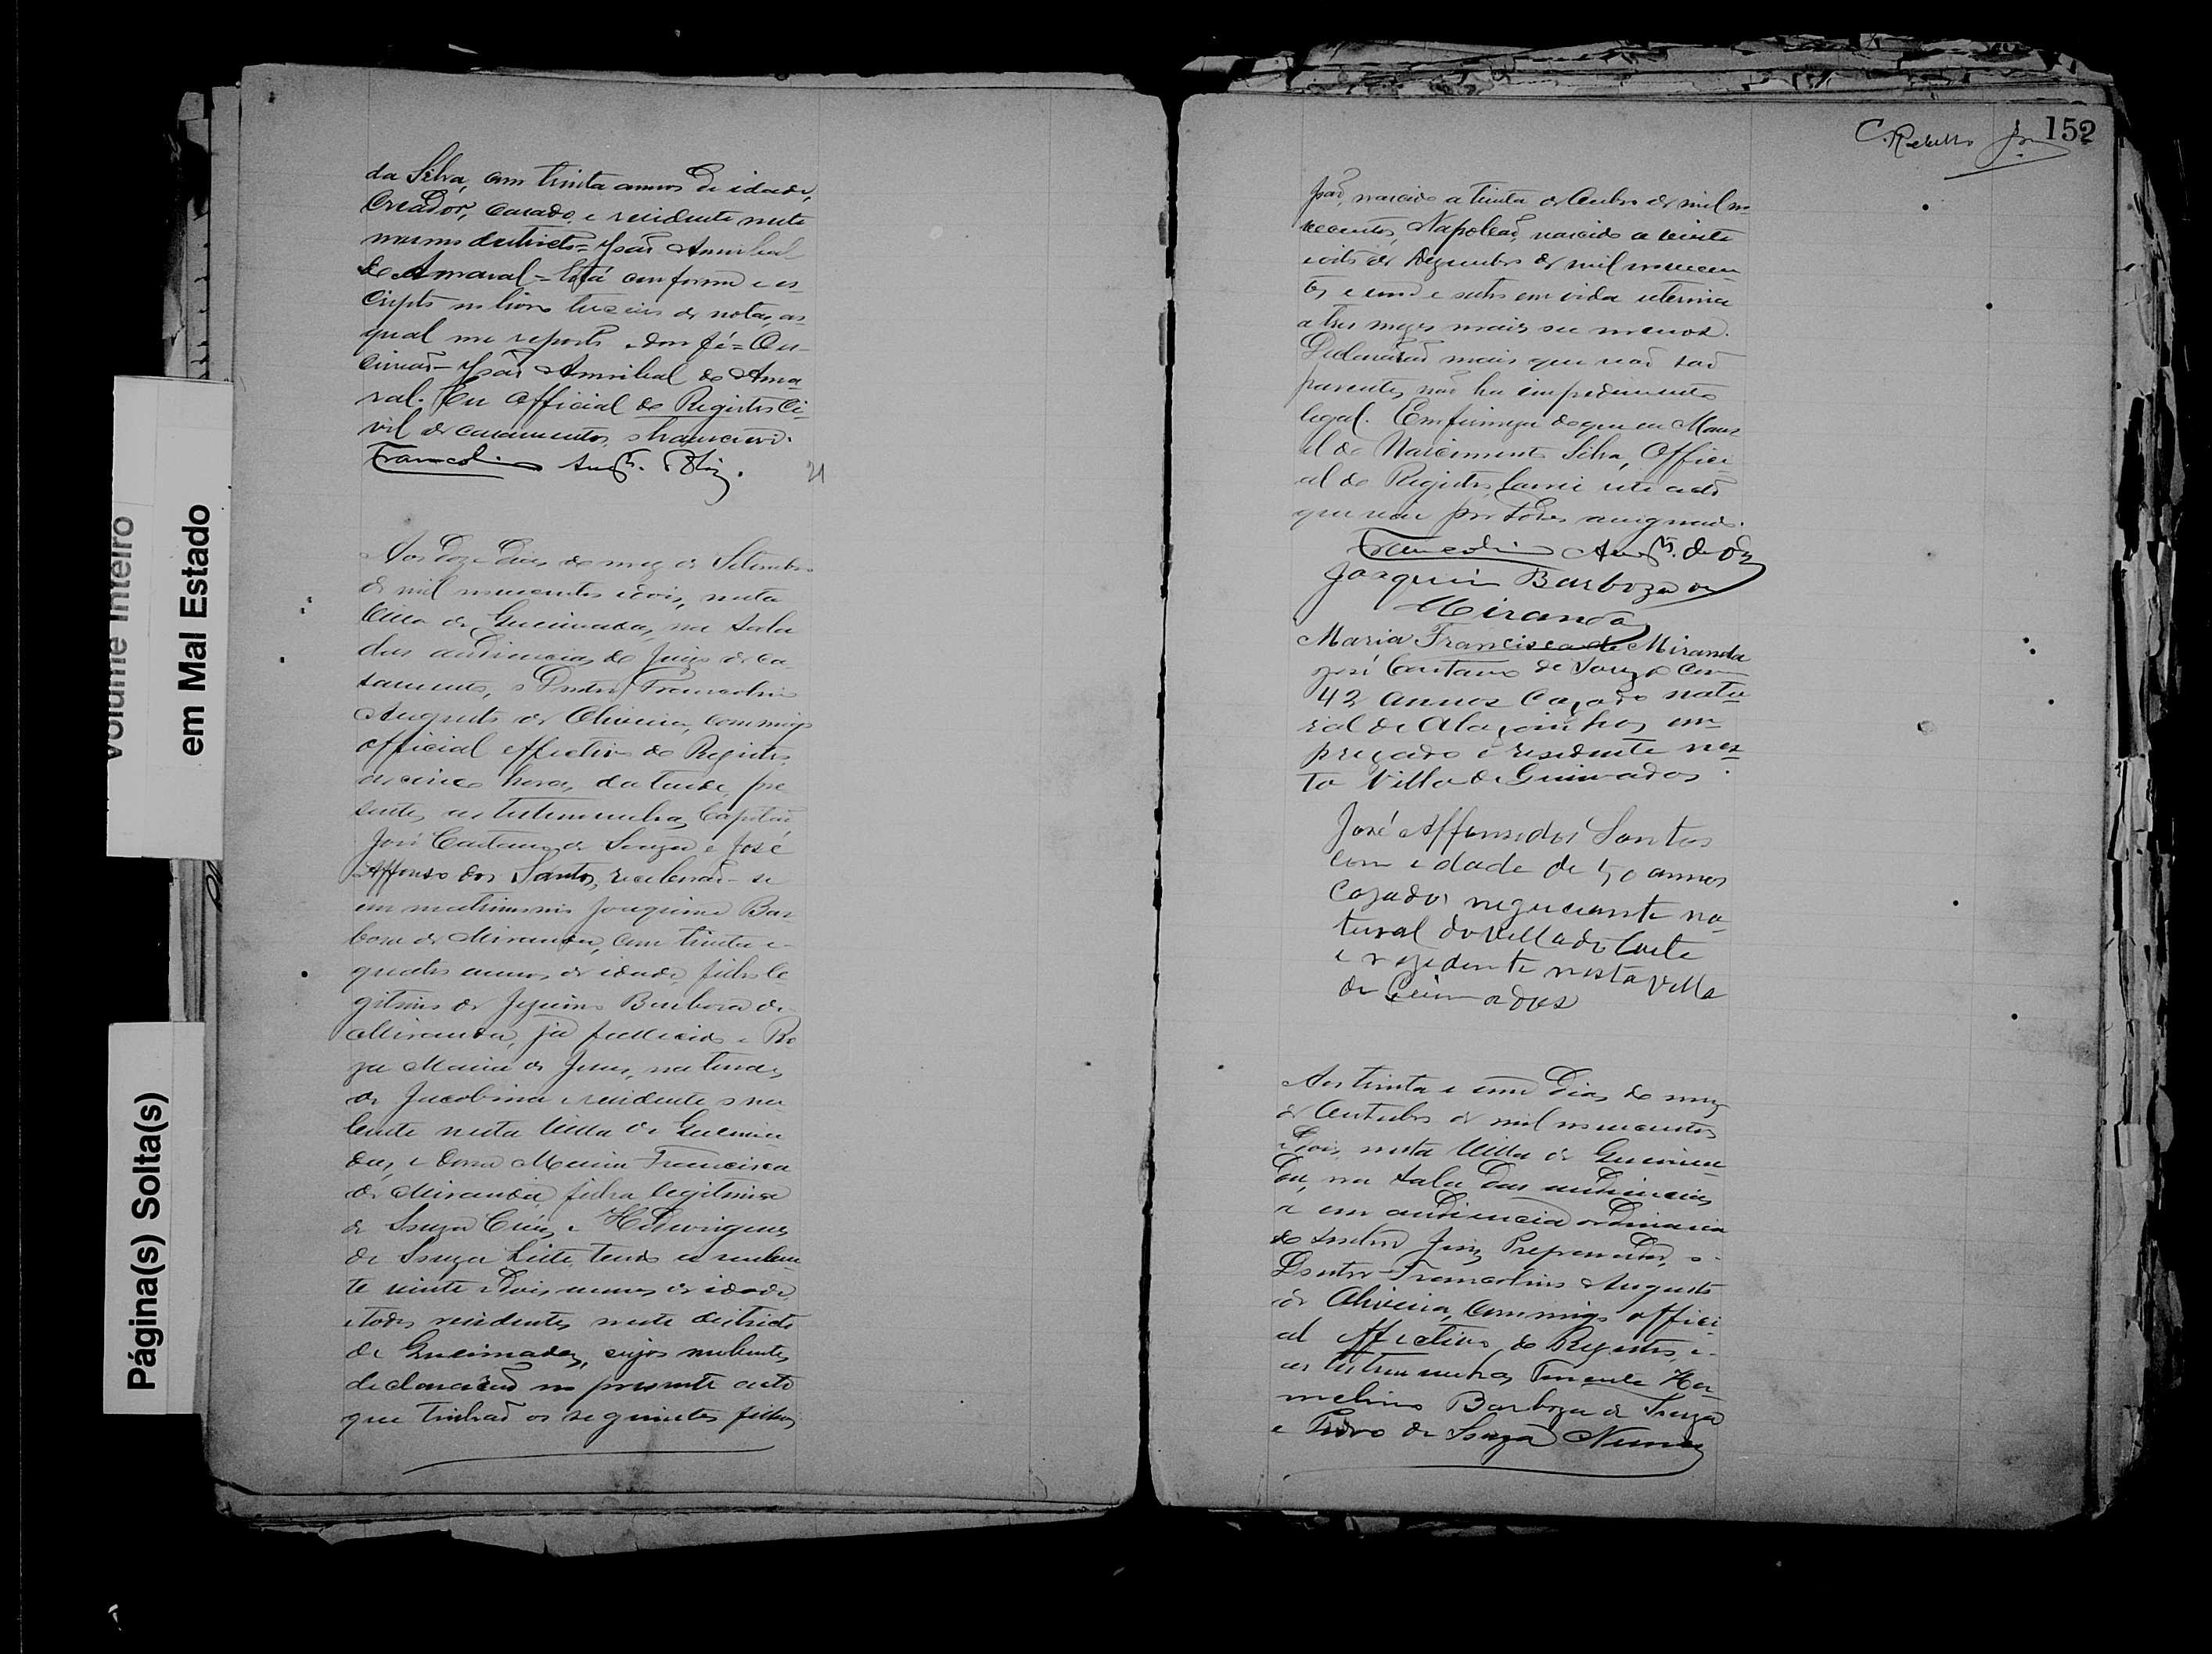 Volume Inteiro
em Mal Estado
Página(s) Solta(s)
da Silva, com trinta annos de idade,
Creador, casado e residente neste
mesmo districto = João Annibal
do Amaral = Está conforme e es-
cripto no livro de notas, ao
qual me reporto e dou fé =
João Annibal do Ama-
ral. Eu Official do Registro Ci-
vil de casamentos, o transcrevi.
Francolino Augto.
21
Aos doze dias do mez de Setembro
de mil novecentos e dois, nesta
Villa de Queimadas, na sala
das audiencias do Juizo de ca-
samentos, o Doutor Francolino
Augusto de Oliveira, commigo
official effectivo do Registro,
as cinco horas da tarde, pre-
sentes as testemunhas, Capitão
José Caetano de Souza e José
Affonso dos Santos, receberão-se
em matrimonio Joaquim Bar-
boza de Miranda, com trinta e
quatro annos de idade, filho le-
gitimo de Barboza de
Miranda, já fallecido e Ro-
za Maria de Jesus, natural
de Jacobina e residente
nesta Villa de Queima-
das, e Dona Maria Francisca
de Miranda, filha legitima
de Souza e
de Souza Leite, tendo a
te vinte e dois annos de idade,
e todos residentes neste districto
de Queimadas, cujos nubentes
declararão no presente acto
que tinhão os seguintes filhos
152
João, nascido a trinta de Outubro de mil no-
vecentos, Napoleão, nascido a vinte
e oito de Dezembro de mil novecen-
tos e um e outro em vida uterina
a tres mezes mais ou menos.
Declararão mais que não são
parentes, não ha impedimento
legal. Em firmeza do que eu Mano-
el do Nascimento Silva, Offici-
al do Registro, lavrei este acto
que vae por todos assignado.
Francolino Augto. de
Joaquim Barboza de
Miranda
Maria Francisca de Miranda
José Caetano de Souza com
42 annos cazado natu-
ral de Alagoinhas, em-
pregado e residente nes-
ta Villa de Queimadas.
José Affonso dos Santos
com edade de 50 annos
Cazado, negociante na-
tural da Villa do
e rezidente nesta Villa
de Queimadas
Aos trinta e um dias do mez
de Outubro de mil novecentos
e dois, nesta Villa de Queima-
das, na sala das audiencias
e em audiencia ordinaria
do Doutor Juiz Preparador, o
Doutor Francolino Augusto
de Oliveira, commigo offici-
al effectivo do Registro, e
as testemunhas Tenente Her-
melino Barboza de Souza
e Pedro de Souza Nunes